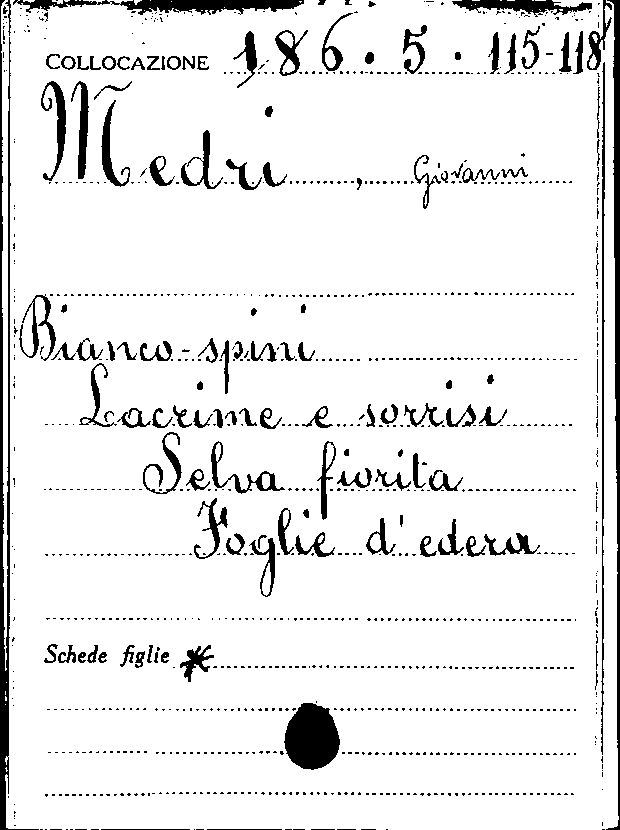 COLLOCAZIONE 186.5.115-118
Medri, Giovanni
Bianco-spini
Lacrime e sorrisi
Selva fiorita
Foglie d'edera
Schede figlie *